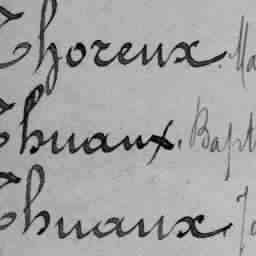 Thoreux. Ma
Thuaux. Bapt
Thuaux. Jo